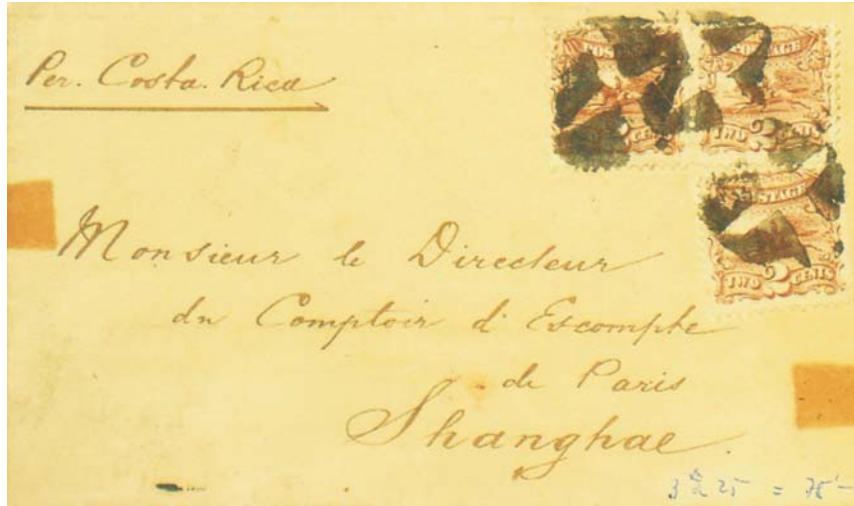 Per. Costa. Rica
POSTAGE
TWO 2 CENTS
POSTAGE
TWO 2 CENTS
Monsieur le Directeur
du Comptoir d'Escompte
de Paris
Shanghae.
3 à 25 = 75 —